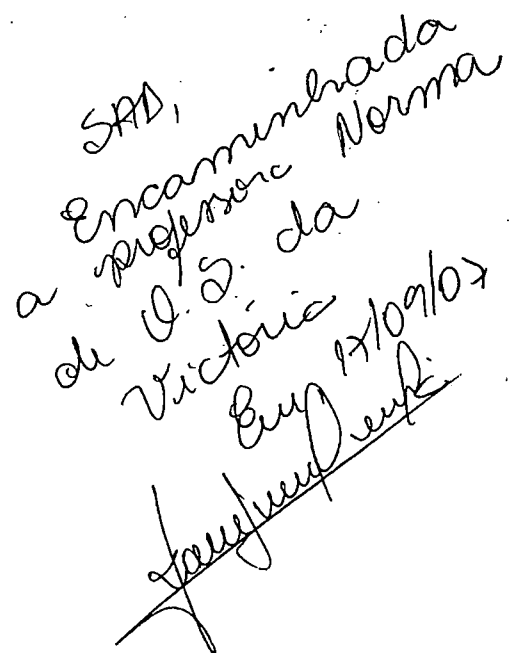 SAD,
Encaminhada
a professora Norma
de O. S. da
Victória
Em 17/09/07